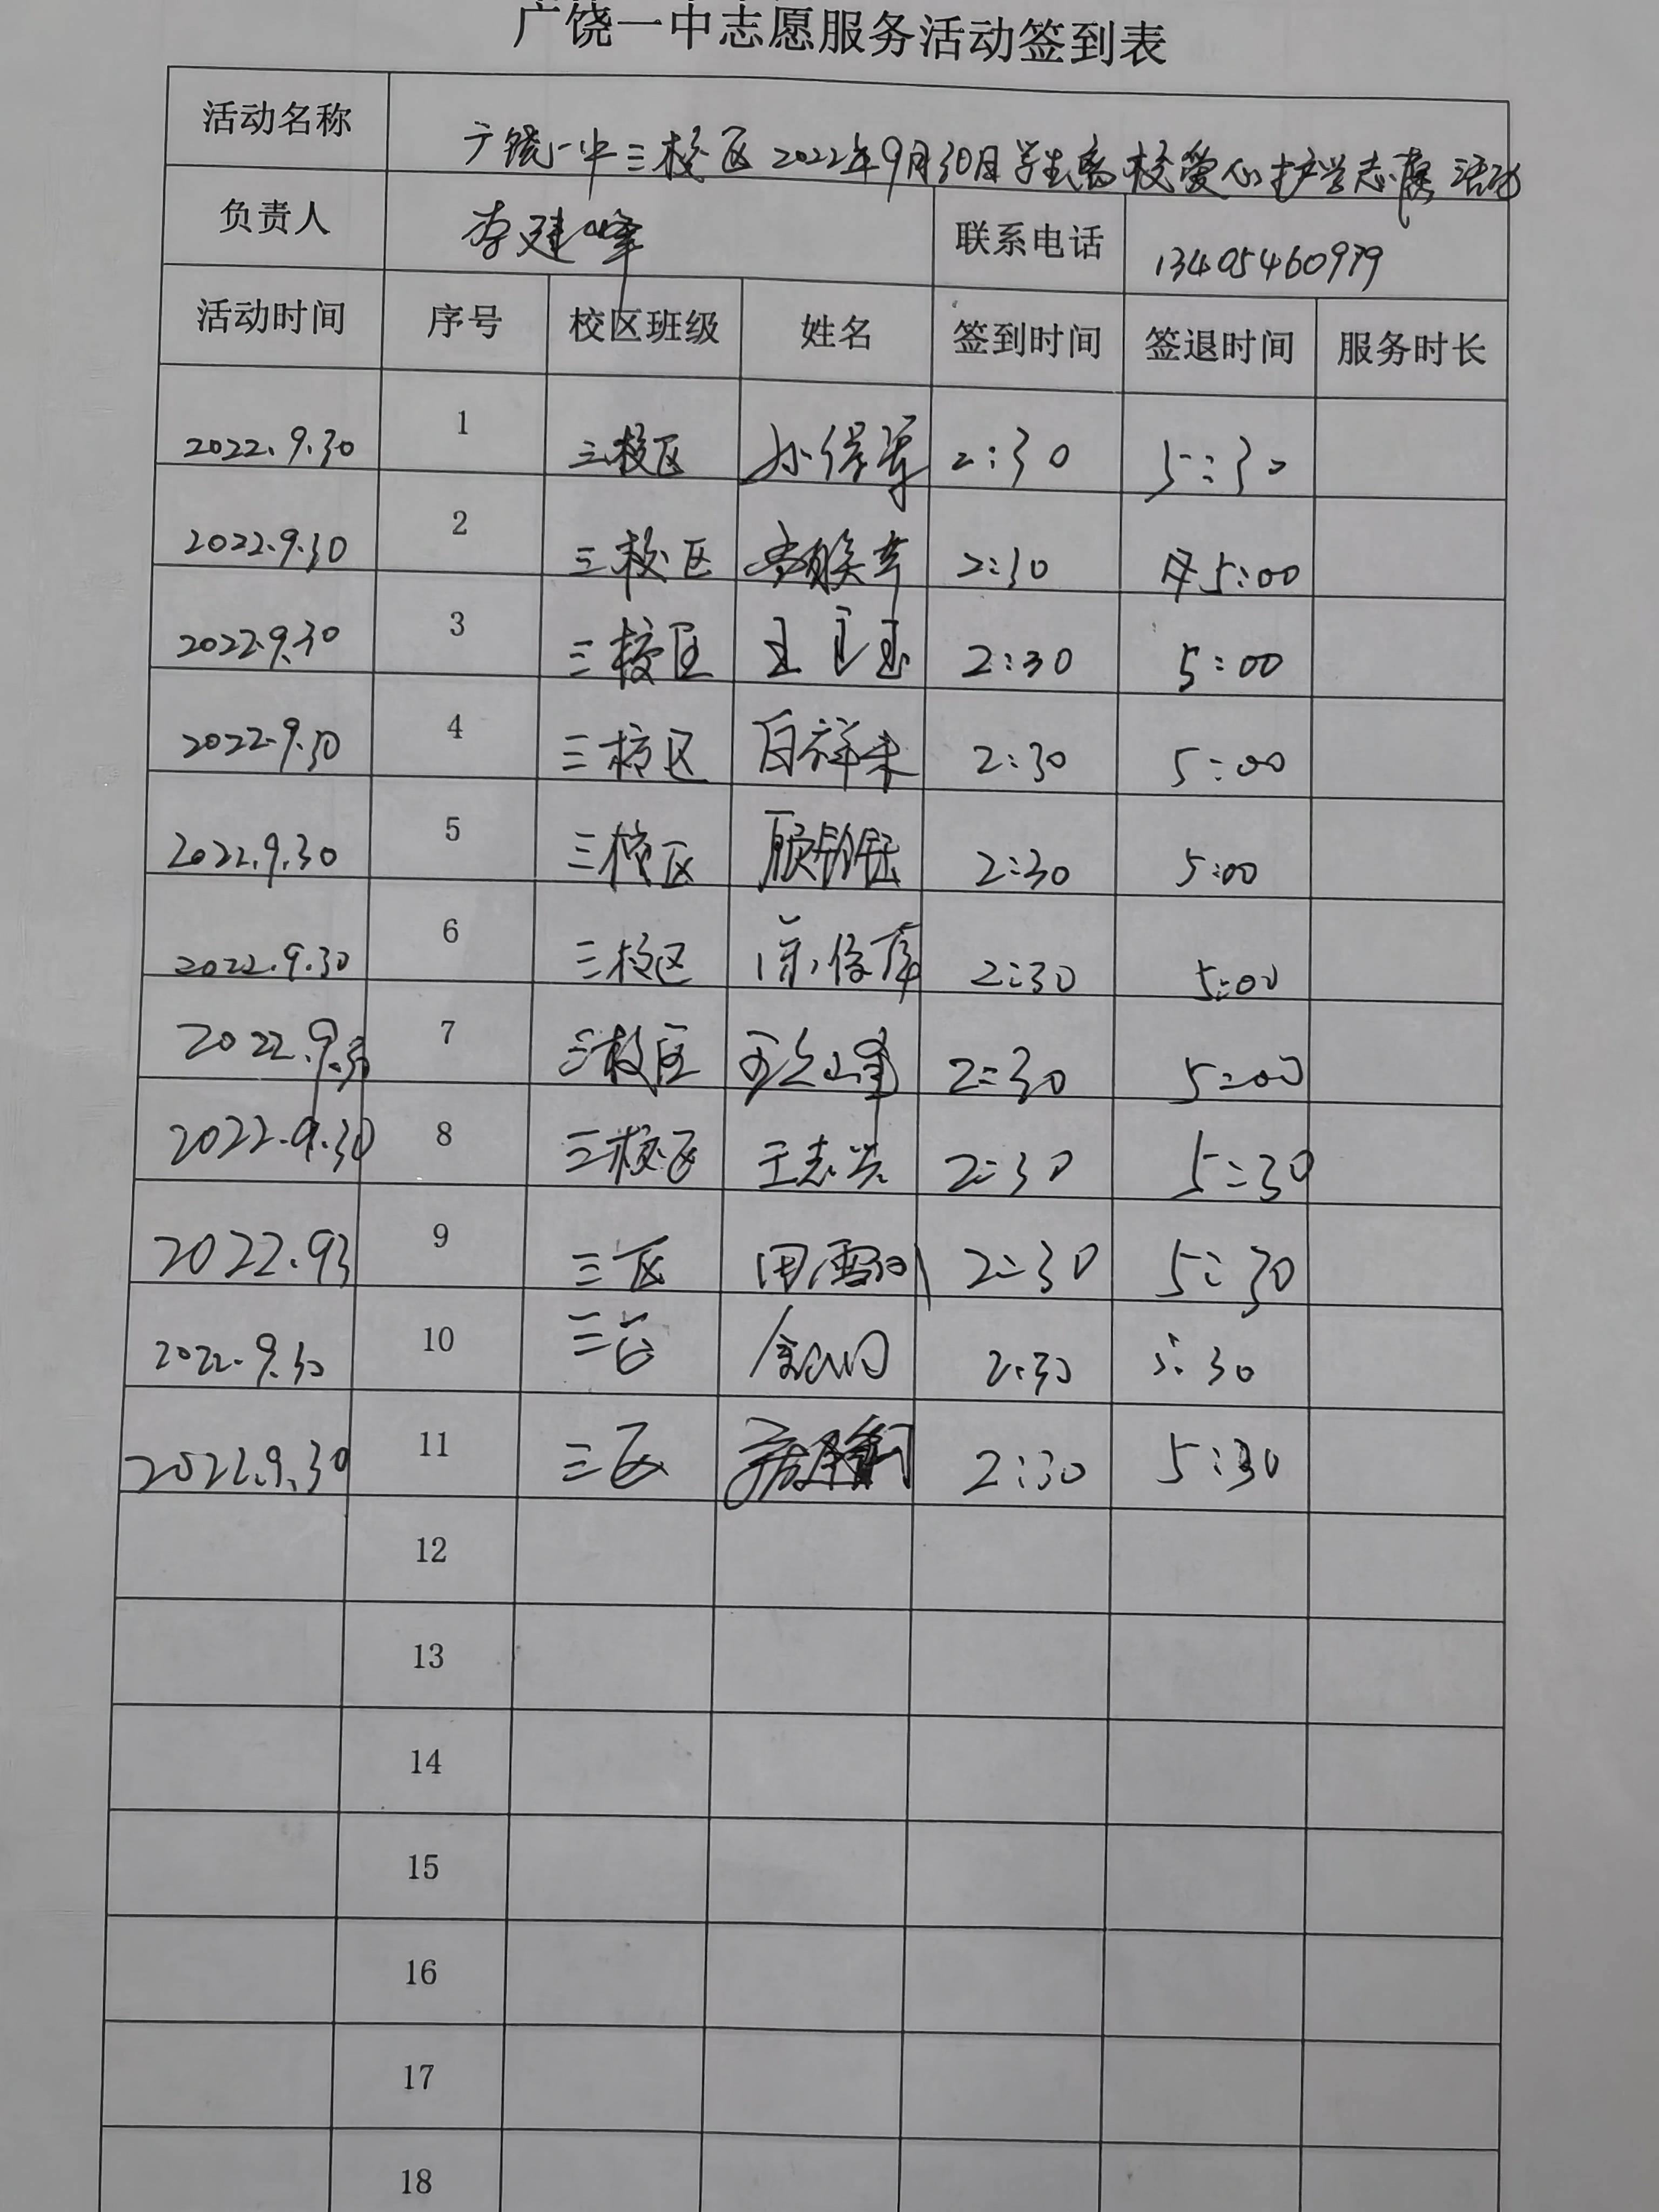 广饶一中志愿服务活动签到表
活动名称 广饶一中三校区2022年9月30日学生离校爱心护学志愿活动
负责人 李建峰 联系电话 13405460979
活动时间 序号 校区班级 姓名 签到时间 签退时间 服务时长
2022.9.30 1 三校区 孙保军 2:30 5:30
2022.9.30 2 三校区 2:30 5:00
2022.9.30 3 三校区 2:30 5:00
2022.9.30 4 三校区 2:30 5:00
2022.9.30 5 三校区 2:30 5:00
2022.9.30 6 三校区 2:30 5:00
2022.9.30 7 三校区 2:30 5:00
2022.9.30 8 三校区 王志兴 2:30 5:30
2022.9.3 9 三区 2:30 5:30
2022.9.30 10 三区 2:30 5:30
2022.9.30 11 三区 2:30 5:30
12
13
14
15
16
17
18